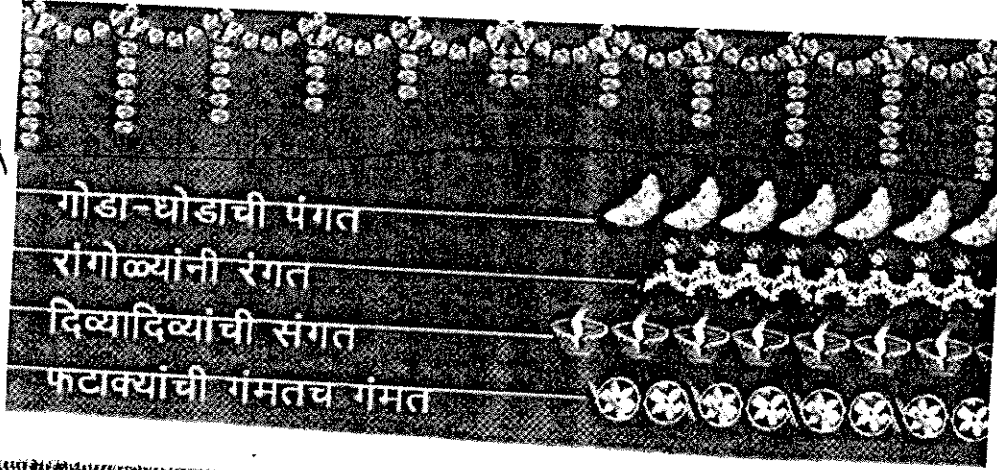 गोडा-धोडाची पंगत
रांगोळ्यांनी रंगत
दिव्यादिव्यांची संगत
फटाक्यांची गंमतच गंमत